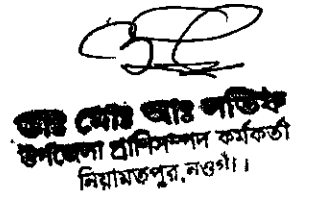 ডাঃ মোঃ আঃ লতিফ
উপজেলা প্রাণিসম্পদ কর্মকর্তা
নিয়ামতপুর, নওগাঁ।